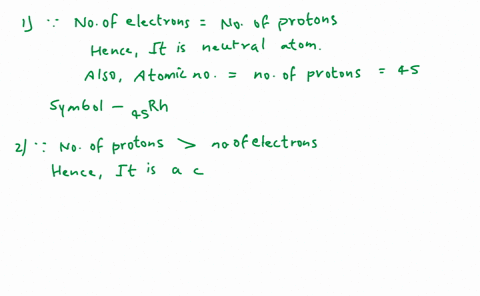 1) ∵ No. of electrons = No. of protons
Hence, It is neutral atom.
Also, Atomic no. = no. of protons = 45
Symbol - ₄₅Rh
2) ∵ No. of protons > no of electrons
Hence, It is a c